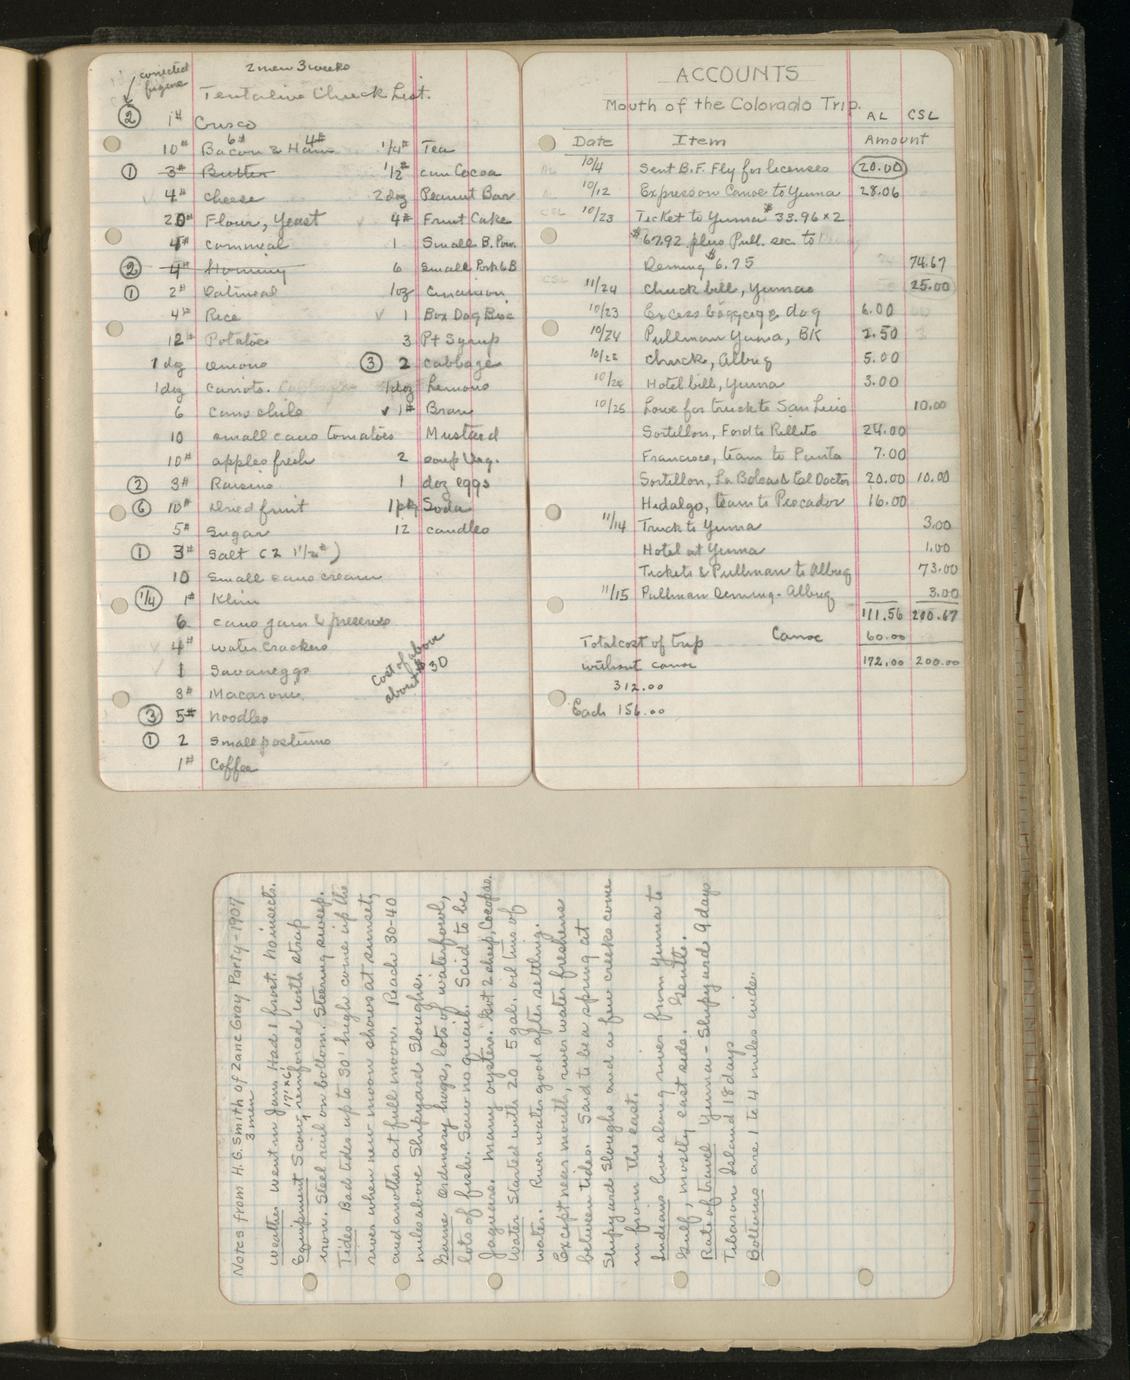 corrected
figure
2 men 3 weeks
Tentative Chuck List.
② 1# Crisco
10# Bacon 6# & Ham 4#
① 3# Butter
4# Cheese
20# Flour, Yeast
4# Cornmeal
② 4# Hominy
① 2# Oatmeal
4# Rice
12# Potatoes
1 dz onions
1 doz carrots.
6 cans chile
10 small cans tomatoes
10# apples fresh
② 3# Raisins
⑥ 10# Dried fruit
5# Sugar
① 3# Salt (2 1½#)
10 small cans cream
1/4 1# Klim
6 cans jam & preserves
4# water crackers
1 Savaneggs
3# Macaroni
③ 5# Noodles
① 2 small postums
1# Coffee
1/4# Tea
1/2# can Cocoa
2 doz Peanut Bar
4# Fruit Cake
1 Small B. Pow.
6 small Pork & B
1 oz Cinnamon
✓ 1 Box Dog Bisc
3 Pt Syrup
③ 2 cabbage
1 doz Lemons
✓ 1# Bran
Mustard
2 soup Veg.
1 doz eggs
1 pkg Soda
12 candles
Cost of above
about 30
ACCOUNTS
Mouth of the Colorado Trip.
AL CSL
Date Item Amount
10/4 Sent B.F. Fly for licenses 20.00
10/12 Express on Canoe to Yuma 28.06
10/23 Ticket to Yuma $33.96 x 2
$67.92 plus Pull. sec. to
Deming $6.75 74.67
11/24 Chuck bill, Yuma 25.00
10/23 Excess baggage dog 6.00
10/24 Pullman Yuma, BK 2.50
10/22 chuck, Albuq 5.00
Hotel bill, Yuma 3.00
10/25 Lowe for truck to San Luis 10.00
Sortillon, Ford to Rillito 24.00
Francisco, team to Punta 7.00
Sortillon, La Bolsa & Col Doctor 20.00 10.00
Hidalgo, team to Pescador 16.00
11/14 Truck to Yuma 3.00
Hotel at Yuma 1.00
Tickets & Pullman to Albuq 73.00
11/15 Pullman Deming - Albuq 3.00
111.56 200.67
Canoe 60.00
172.00 200.00
Total cost of trip
without canoe
312.00
Each 156.00
Notes from H.G. Smith of Zane Gray Party - 1907
3 men
Weather went in Jan. Had 1 frost. No insects.
Equipment Scow, reinforced with strap
iron. Steel rail on bottom. Steering sweep.
Tides Bad tides up to 30' high come up the
river when new moon shows at sunset,
and another at full moon. Reach 30-40
miles above Shipyard Sloughs.
Game ordinary hogs, lots of waterfowl,
lots of fish. Saw no quail. Said to be
Jaguars. Many oysters. Got 2 sheep, Cocopas.
Water Started with 20 5 gal. oil tins of
water. River water good after settling.
Except near mouth, river water freshens
between tides. Said to be a spring at
Shipyard Sloughs and a few creeks come
in from the east.
Indians live along river from Yuma to
Gulf, mostly east side. Gentle.
Rate of travel Yuma - Shipyards 9 days
Tiburon Island 18 days
Bottoms are 1 to 4 miles wide.